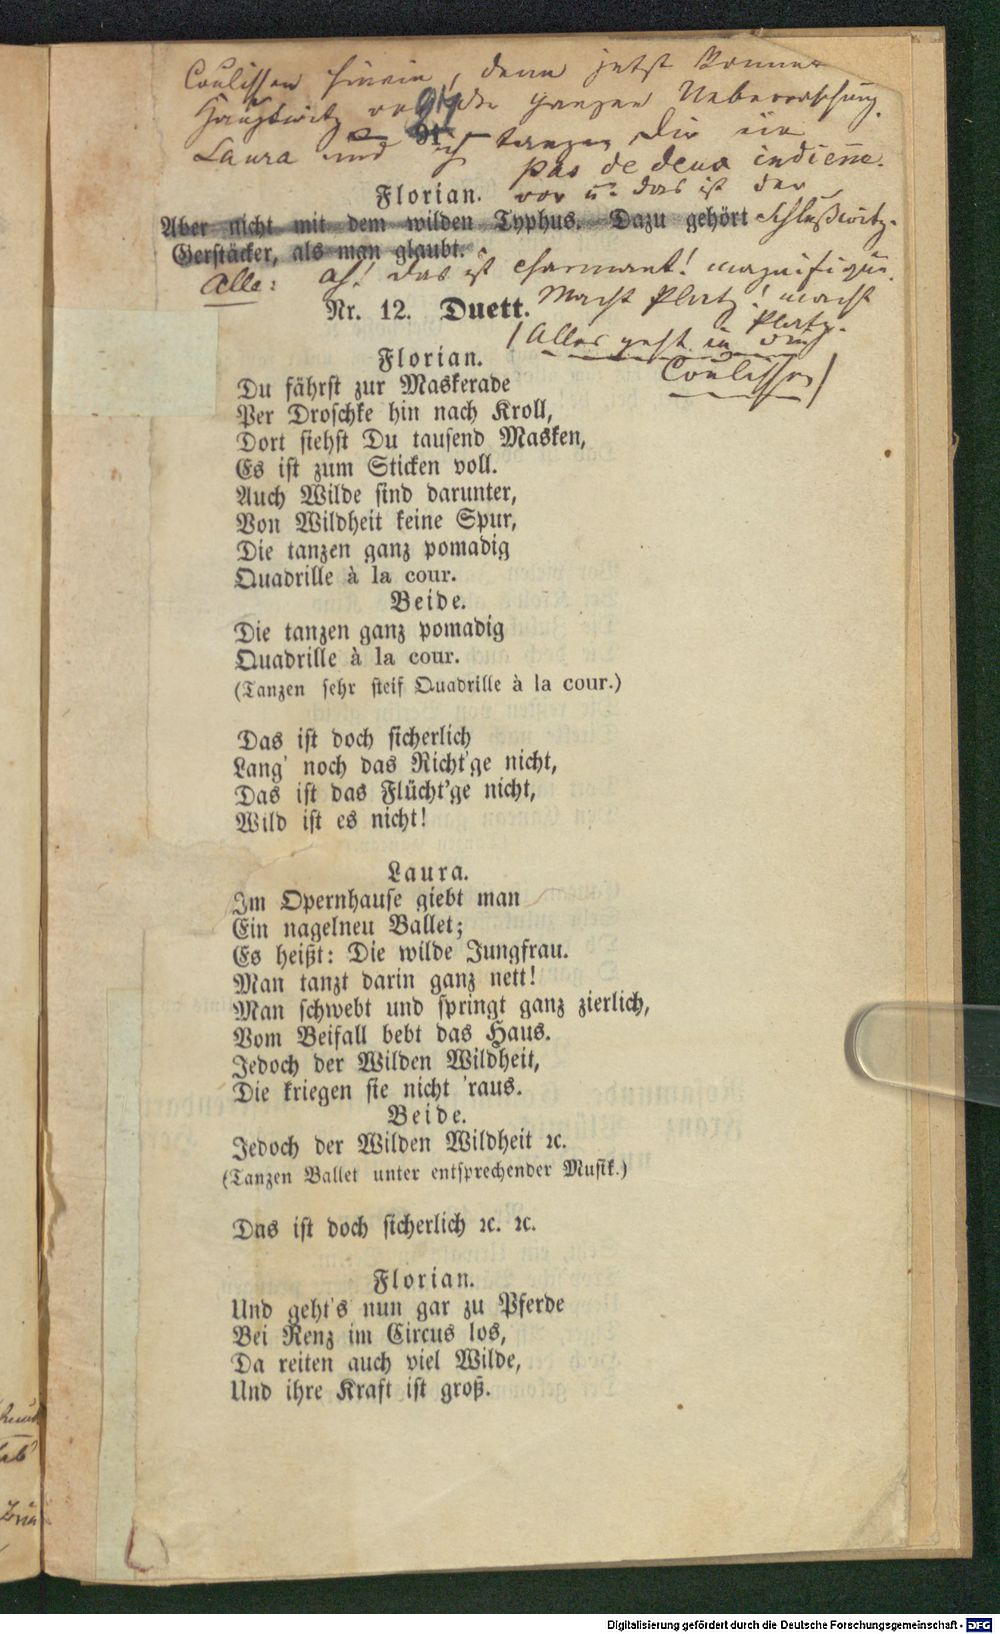 Coulissen hinein, denn jetzt kommt
Hauptwitz der ganzen Ueberraschung.
94
Laura und ich tanzen Dir ein
pas de deux indienne
vor u. das ist der
Schlußwitz.
Florian.
Aber nicht mit dem wilden Typhus. Dazu gehört
Gerstäcker, als man glaubt.
Alle: Ah! das ist charmant! magnifique.
Macht Platz! macht
Platz.
Nr. 12. Duett.
(Alles geht in die
Coulissen)
Florian.
Du fährst zur Maskerade
Per Droschke hin nach Kroll,
Dort siehst Du tausend Masken,
Es ist zum Sticken voll.
Auch Wilde sind darunter,
Von Wildheit keine Spur,
Die tanzen ganz pomadig
Quadrille à la cour.
Beide.
Die tanzen ganz pomadig
Quadrille à la cour.
(Tanzen sehr steif Quadrille à la cour.)
Das ist doch sicherlich
Lang' noch das Richt'ge nicht,
Das ist das Flücht'ge nicht,
Wild ist es nicht!
Laura.
Im Opernhause giebt man
Ein nagelneu Ballet;
Es heißt: Die wilde Jungfrau.
Man tanzt darin ganz nett!
Man schwebt und springt ganz zierlich,
Vom Beifall bebt das Haus.
Jedoch der Wilden Wildheit,
Die kriegen sie nicht 'raus.
Beide.
Jedoch der Wilden Wildheit ꝛc.
(Tanzen Ballet unter entsprechender Musik.)
Das ist doch sicherlich ꝛc. ꝛc.
Florian.
Und geht's nun gar zu Pferde
Bei Renz im Circus los,
Da reiten auch viel Wilde,
Und ihre Kraft ist groß.
Digitalisierung gefördert durch die Deutsche Forschungsgemeinschaft - DFG